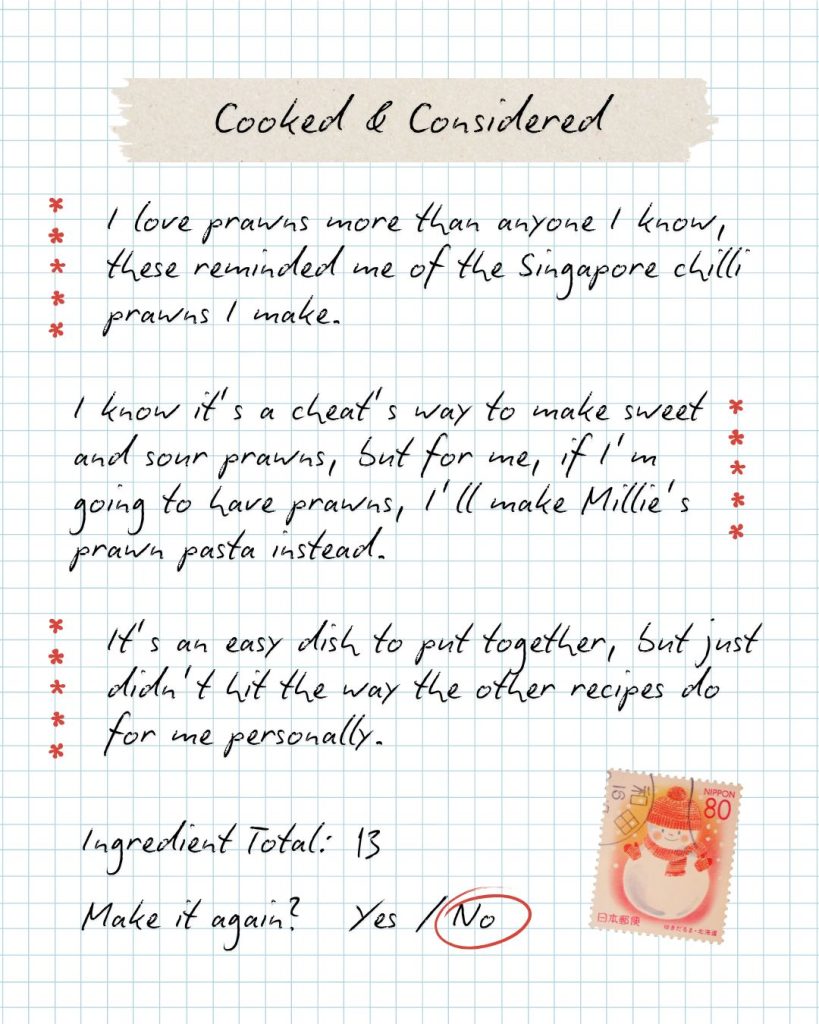 Cooked & Considered
I love prawns more than anyone I know,
these reminded me of the Singapore chilli
prawns I make.
I know it's a cheat's way to make sweet
and sour prawns, but for me, if I'm
going to have prawns, I'll make Millie's
prawn pasta instead.
It's an easy dish to put together, but just
didn't hit the way the other recipes do
for me personally.
Ingredient Total: 13
Make it again? Yes / No
NIPPON
80
16
和
日本郵便
ゆきだるま・北海道